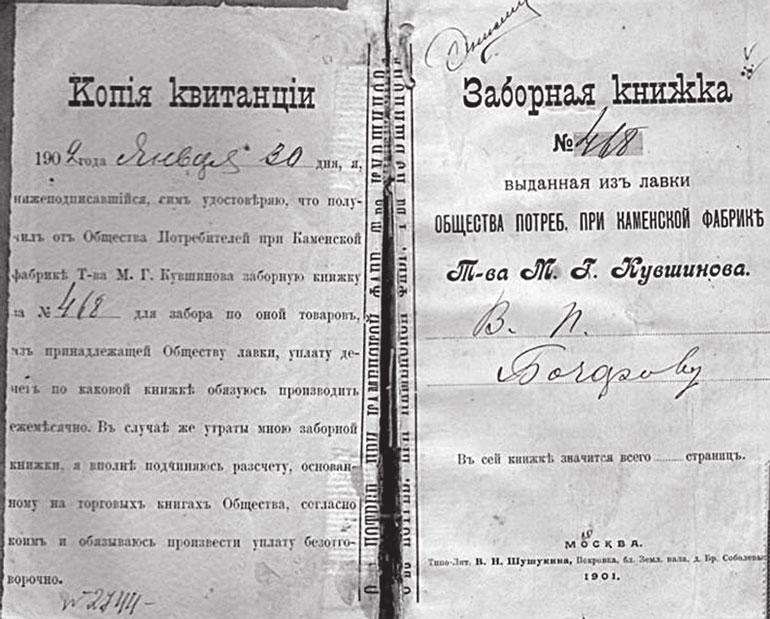 Копія квитанціи
1902 года Января 30 дня, я,
нижеподписавшійся, симъ удостовѣряю, что полу-
чилъ отъ Общества Потребителей при Каменской
фабрикѣ Т-ва М. Г. Кувшинова заборную книжку
за № 468 для забора по оной товаровъ,
изъ принадлежащей Обществу лавки, уплату де-
негъ по каковой книжкѣ обязуюсь производить
ежемѣсячно. Въ случаѣ же утраты мною заборной
книжки, я вполнѣ подчиняюсь разсчету, основан-
ному на торговыхъ книгахъ Общества, согласно
коимъ и обязываюсь произвести уплату безотго-
ворочно.
№ 2744-
Заборная книжка
№ 468
выданная изъ лавки
ОБЩЕСТВА ПОТРЕБ. ПРИ КАМЕНСКОЙ ФАБРИКѢ
Т-ва М. Г. Кувшинова.
В. П.
Бочарову
Въ сей книжкѣ значится всего ........ страницъ.
МОСКВА.
Типо-Лит. В. Н. Шушукина, Покровка, бл. Земл. вала, д. Бр. Соболевых
1901.